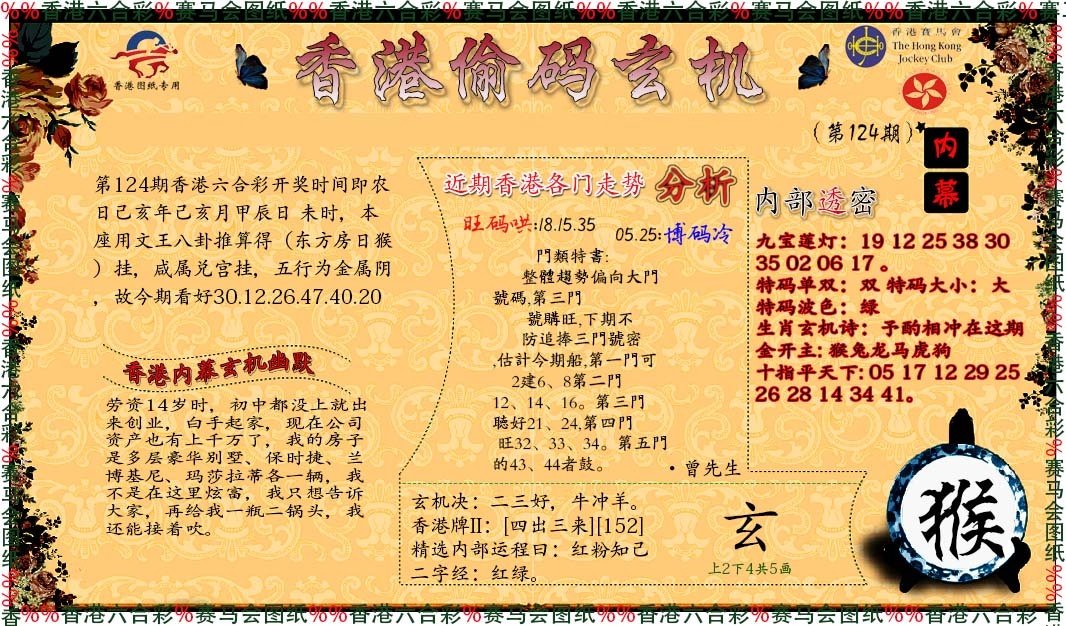 %%香港六合彩%赛马会图纸%%香港六合彩%赛马会图纸%%香港六合彩%赛马会图纸%%香港六合彩%赛
香港图纸专用
香港偷码玄机
香港賽馬會
The Hong Kong
Jockey Club
(第124期)
内
幕
第124期香港六合彩开奖时间即农
日己亥年己亥月甲辰日 未时，本
座用文王八卦推算得（东方房日猴
）挂，咸属兑宫挂，五行为金属阴
，故今期看好30.12.26.47.40.20
香港内幕玄机幽默
劳资14岁时，初中都没上就出
来创业，白手起家，现在公司
资产也有上千万了，我的房子
是多层豪华别墅、保时捷、兰
博基尼、玛莎拉蒂各一辆，我
不是在这里炫富，我只想告诉
大家，再给我一瓶二锅头，我
还能接着吹。
近期香港各门走势 分析
旺码哄:18.15.35
05.25:博码冷
門類特書:
整體趨勢偏向大門
號碼,第三門
號購旺,下期不
防追捧三門號密
,估計今期船,第一門可
2建6、8第二門
12、14、16。第三門
聽好21、24,第四門
旺32、33、34。第五門
的43、44者鼓。
·曾先生
玄机决：二三好，牛冲羊。
香港牌II：[四出三来][152]
精选内部运程日：红粉知己
二字经：红绿。
玄
上2下4共5画
内部透密
九宝莲灯：19 12 25 38 30
35 02 06 17 。
特码单双：双 特码大小：大
特码波色：绿
生肖玄机诗：子酌相冲在这期
金开主: 猴兔龙马虎狗
十指平天下: 05 17 12 29 25
26 28 14 34 41。
猴
香%%香港六合彩%赛马会图纸%%香港六合彩%赛马会图纸%%香港六合彩%赛马会图纸%%香港六合彩%